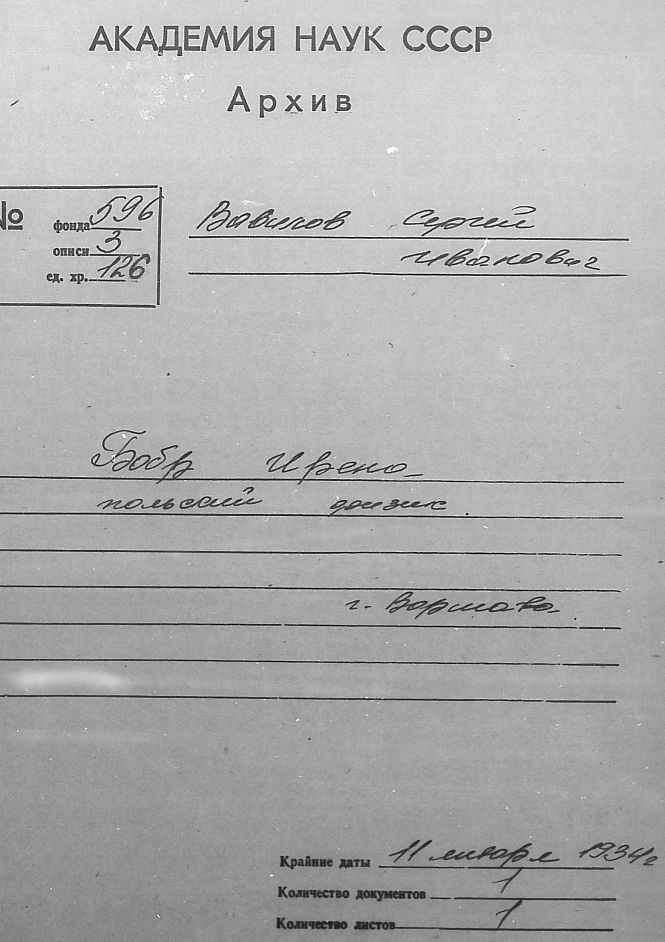 АКАДЕМИЯ НАУК СССР
Архив
№
фонда 596
описи 3
ед. хр. 126
Вавилов Сергей
Иванович
Бобр Ирена
польский физик.
г. Варшава.
Крайние даты 11 января 1934 г
Количество документов 1
Количество листов 1